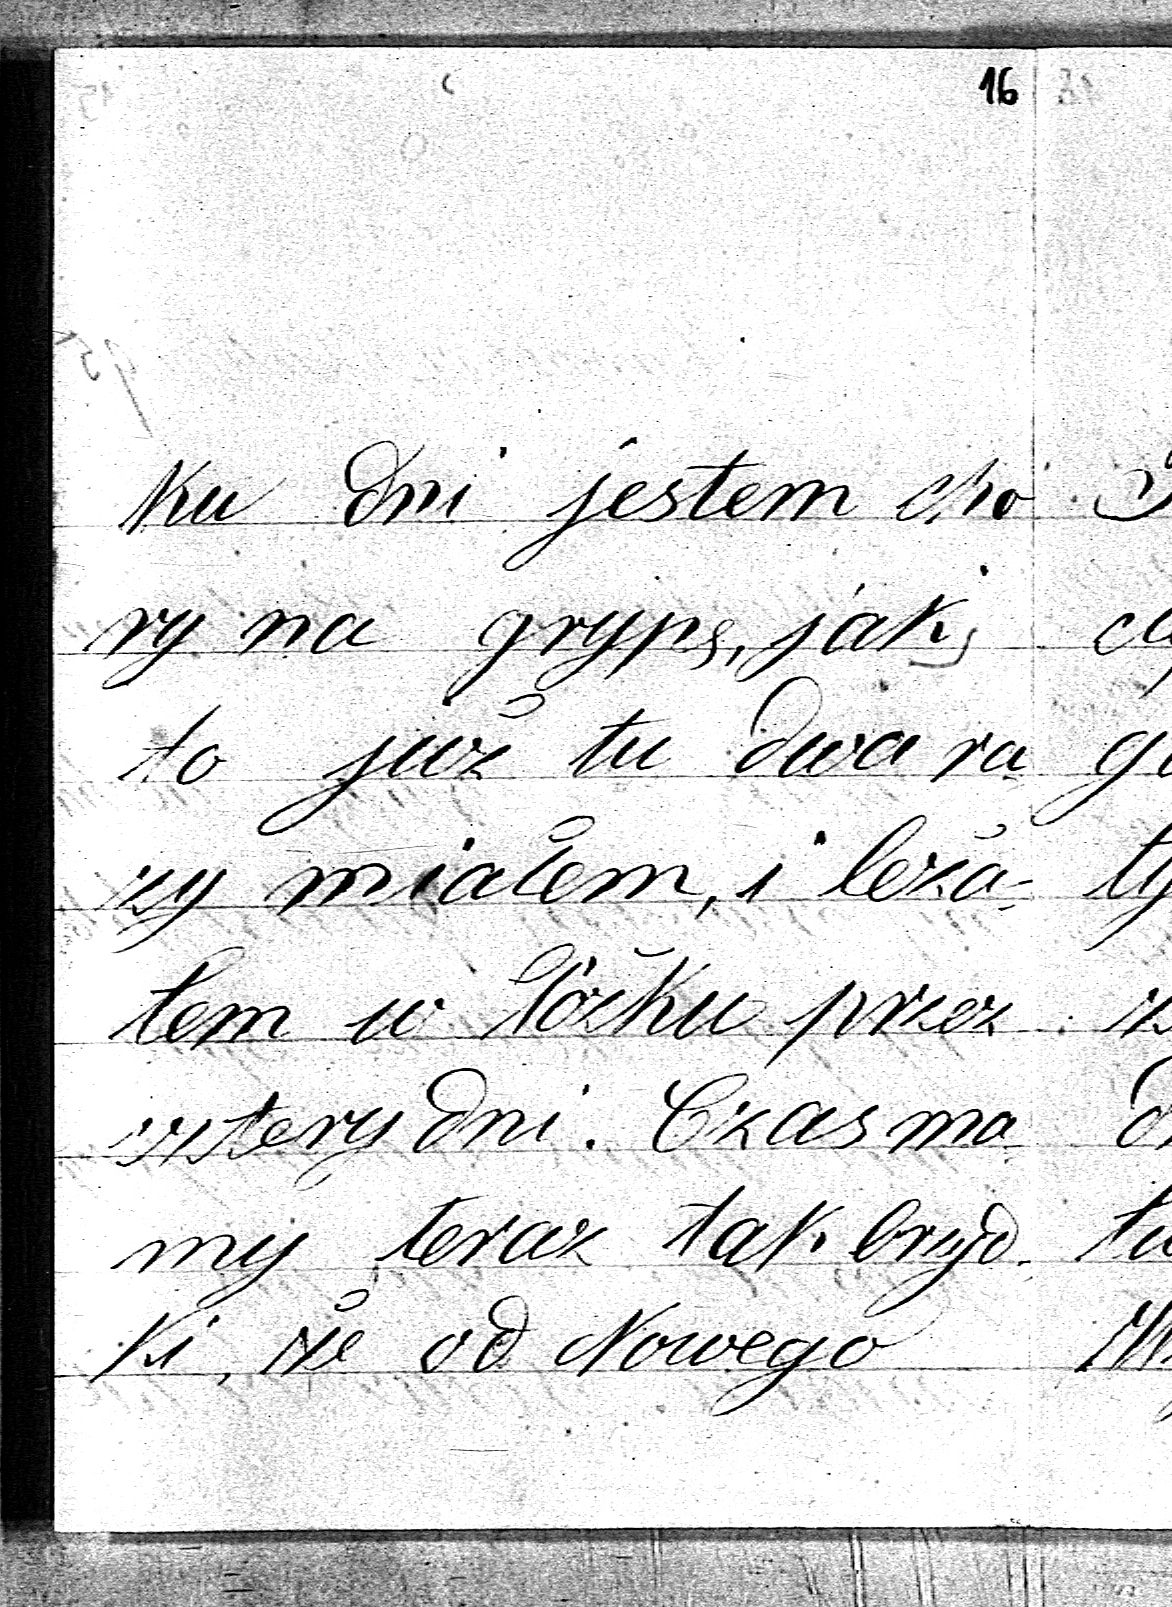 16
ku dni jestem cho
ry na grypę, jaką
to już tu dwa ra
zy miałem, i leża-
łem w łóżku przez
cztery dni. Czas ma
my teraz tak brzyd
ki, że od Nowego